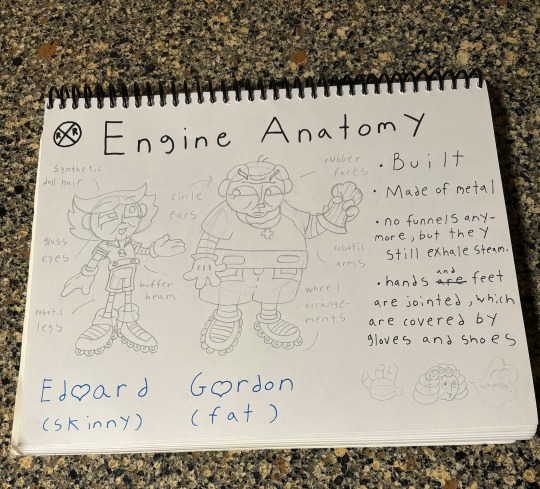 R R
Engine Anatomy
Synthetic
doll hair
circle
ears
rubber
faces
glass
eyes
robotic
arms
buffer
beam
robotic
legs
wheel
arrange-
ments
• Built
• Made of metal
• no funnels any-
more, but they
still exhale steam.
• hands and are feet
are jointed, which
are covered by
gloves and shoes
Ed♡ard
(skinny)
G♡rdon
(fat)